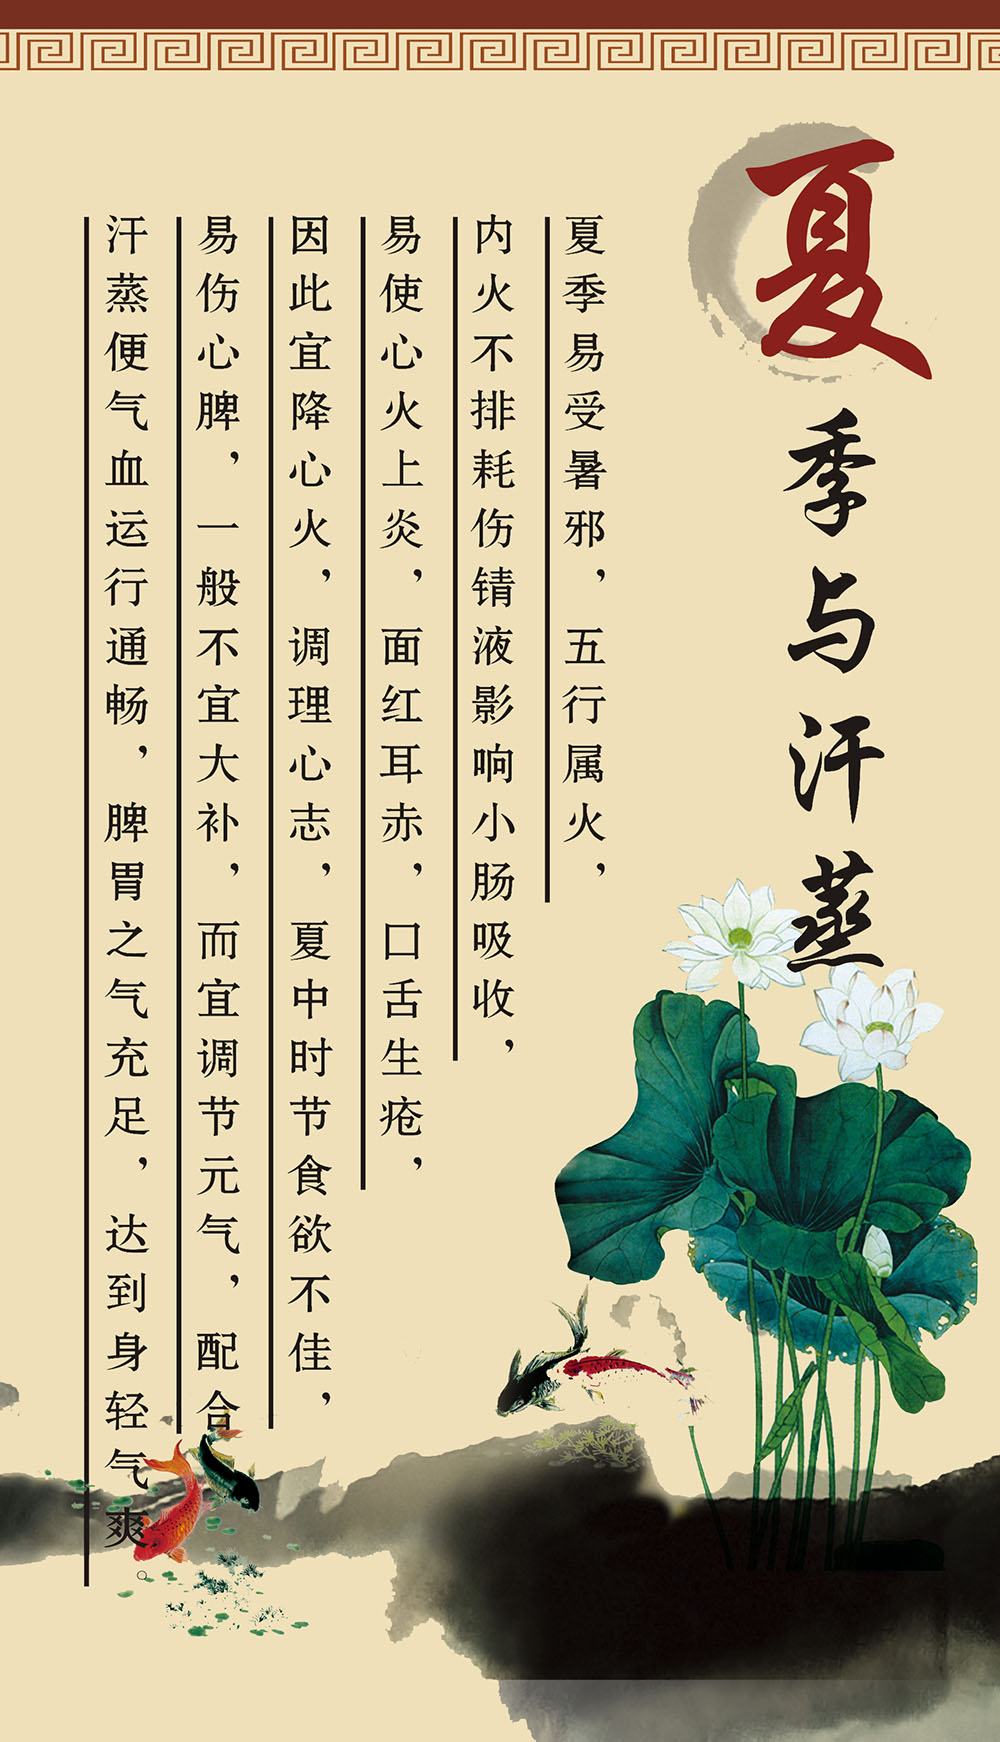 夏季与汗蒸
夏季易受暑邪，五行属火，
内火不排耗伤锖液影响小肠吸收，
易使心火上炎，面红耳赤，口舌生疮，
因此宜降心火，调理心志，夏中时节食欲不佳，
易伤心脾，一般不宜大补，而宜调节元气，配合
汗蒸便气血运行通畅，脾胃之气充足，达到身轻气爽。